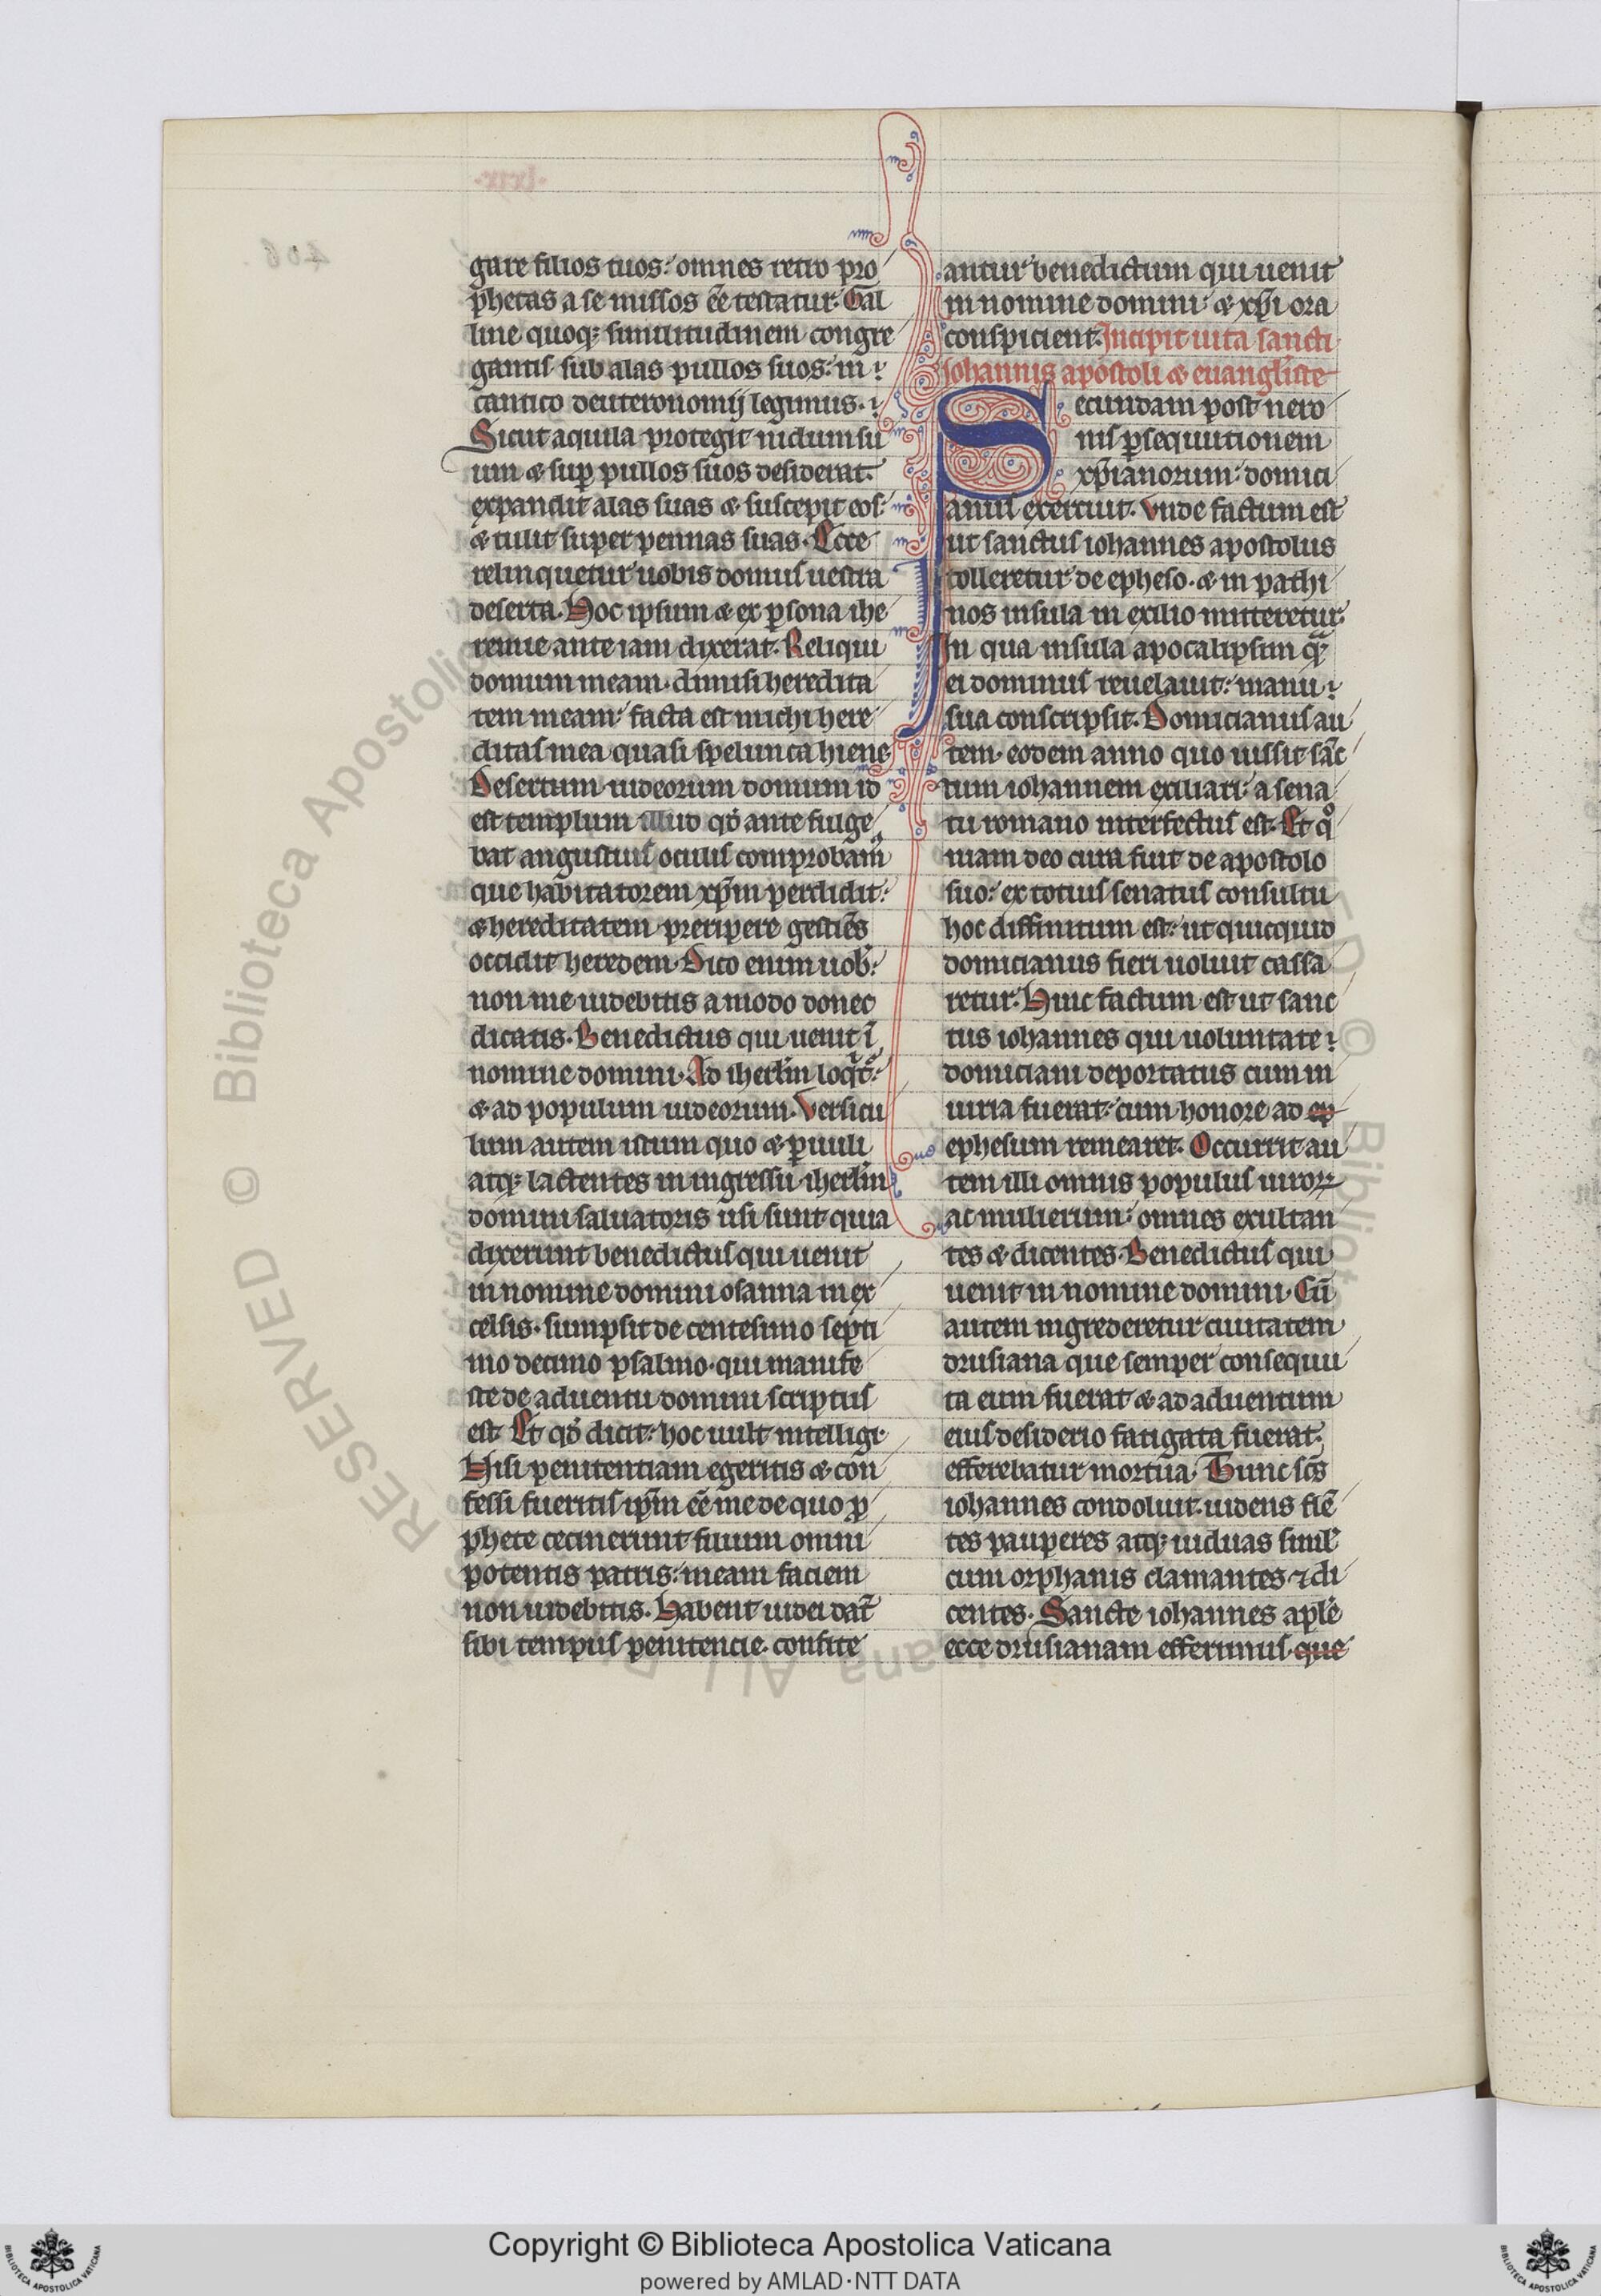 gare filios tuos: omnes retro pro
phetas a se missos eē testatur. Gal
line quoq; similitudinem congre
gantis sub alas pullos suos: in
cantico deuteronomij legimus.
Sicut aquila protegit nidum su
um & sup pullos suos desiderat.
expandit alas suas & suscepit eos:
& tulit super pennas suas. Ecce
relinquetur uobis domus uestra
deserta. Hoc ipsum & ex psona ihe
remie ante iam dixerat. Reliqui
domum meam. dimisi heredita
tem meam: facta est michi here
ditas mea quasi spelunca hiene
Desertam iudeorum domum id
est templum illud qd ante fulge
bat angustius oculis comprobam
que habitatorem xpm perdidit:
& hereditatem preripere gestiēs
occidit heredem. Dico enim uob:
non me uidebitis amodo donec
dicatis. Benedictus qui uenit ī
nomine domini. Ad iherlm loqt:
& ad populum iudeorum. Versicu
lum autem istum quo & puuli
atq; lactentes in ingressu iherlm
domini saluatoris usi sunt quia
dixerunt benedictus qui uenit
in nomine domini osanna in ex
celsis. sumpsit de centesimo septi
mo decimo psalmo. qui manife
ste de aduentu domini scriptus
est. Et qd dicit: hoc uult intelligi.
Nisi penitentiam egeritis & con
fessi fueritis ipm eē me de quo p
phete cecinerunt filium omni
potentis patris: meam faciem
non uidebitis. Habent iudei dat
sibi tempus penitencie. confite
antur benedictum qui uenit
in nomine domini: & xpi ora
conspicient. Incipit uita sancti
iohannis apostoli & euangliste
Secundam post nero
nis psequutionem
xpianorum: domici
anus exercuit. Vnde factum est
ut sanctus iohannes apostolus
tolleretur de epheso. & in pathi
nos insula in exilio mitteretur.
In qua insula apocalipsim qa
ei dominus reuelauit: manu
sua conscripsit. Domicianus au
tem. eodem anno quo iussit sāc
tum iohannem exiliari: a sena
tu romano interfectus est. Et qo
niam deo cura fuit de apostolo
suo: ex totius senatus consultu
hoc diffinitum est: ut quicquid
domicianus fieri uoluit cassa
retur. Hinc factum est ut sanc
tus iohannes qui uoluntate
domiciani deportatus cum in
iuria fuerat: cum honore ad ep
ephesum remearet. Occurrit au
tem illi omnis populus uiroꝝ
ac mulierum: omnes exultan
tes & dicentes. Benedictus qui
uenit in nomine domini. Cū
autem ingrederetur ciuitatem
drusiana que semper consequu
ta eum fuerat & ad aduentum
eius desiderio fatigata fuerat.
efferebatur mortua. Tunc scs
iohannes condoluit. uidens flē
tes pauperes atq; uiduas simł
cum orphanis clamantes ⁊ di
centes. Sancte iohannes aple
ecce drusianam efferimus que
Copyright © Biblioteca Apostolica Vaticana
powered by AMLAD·NTT DATA